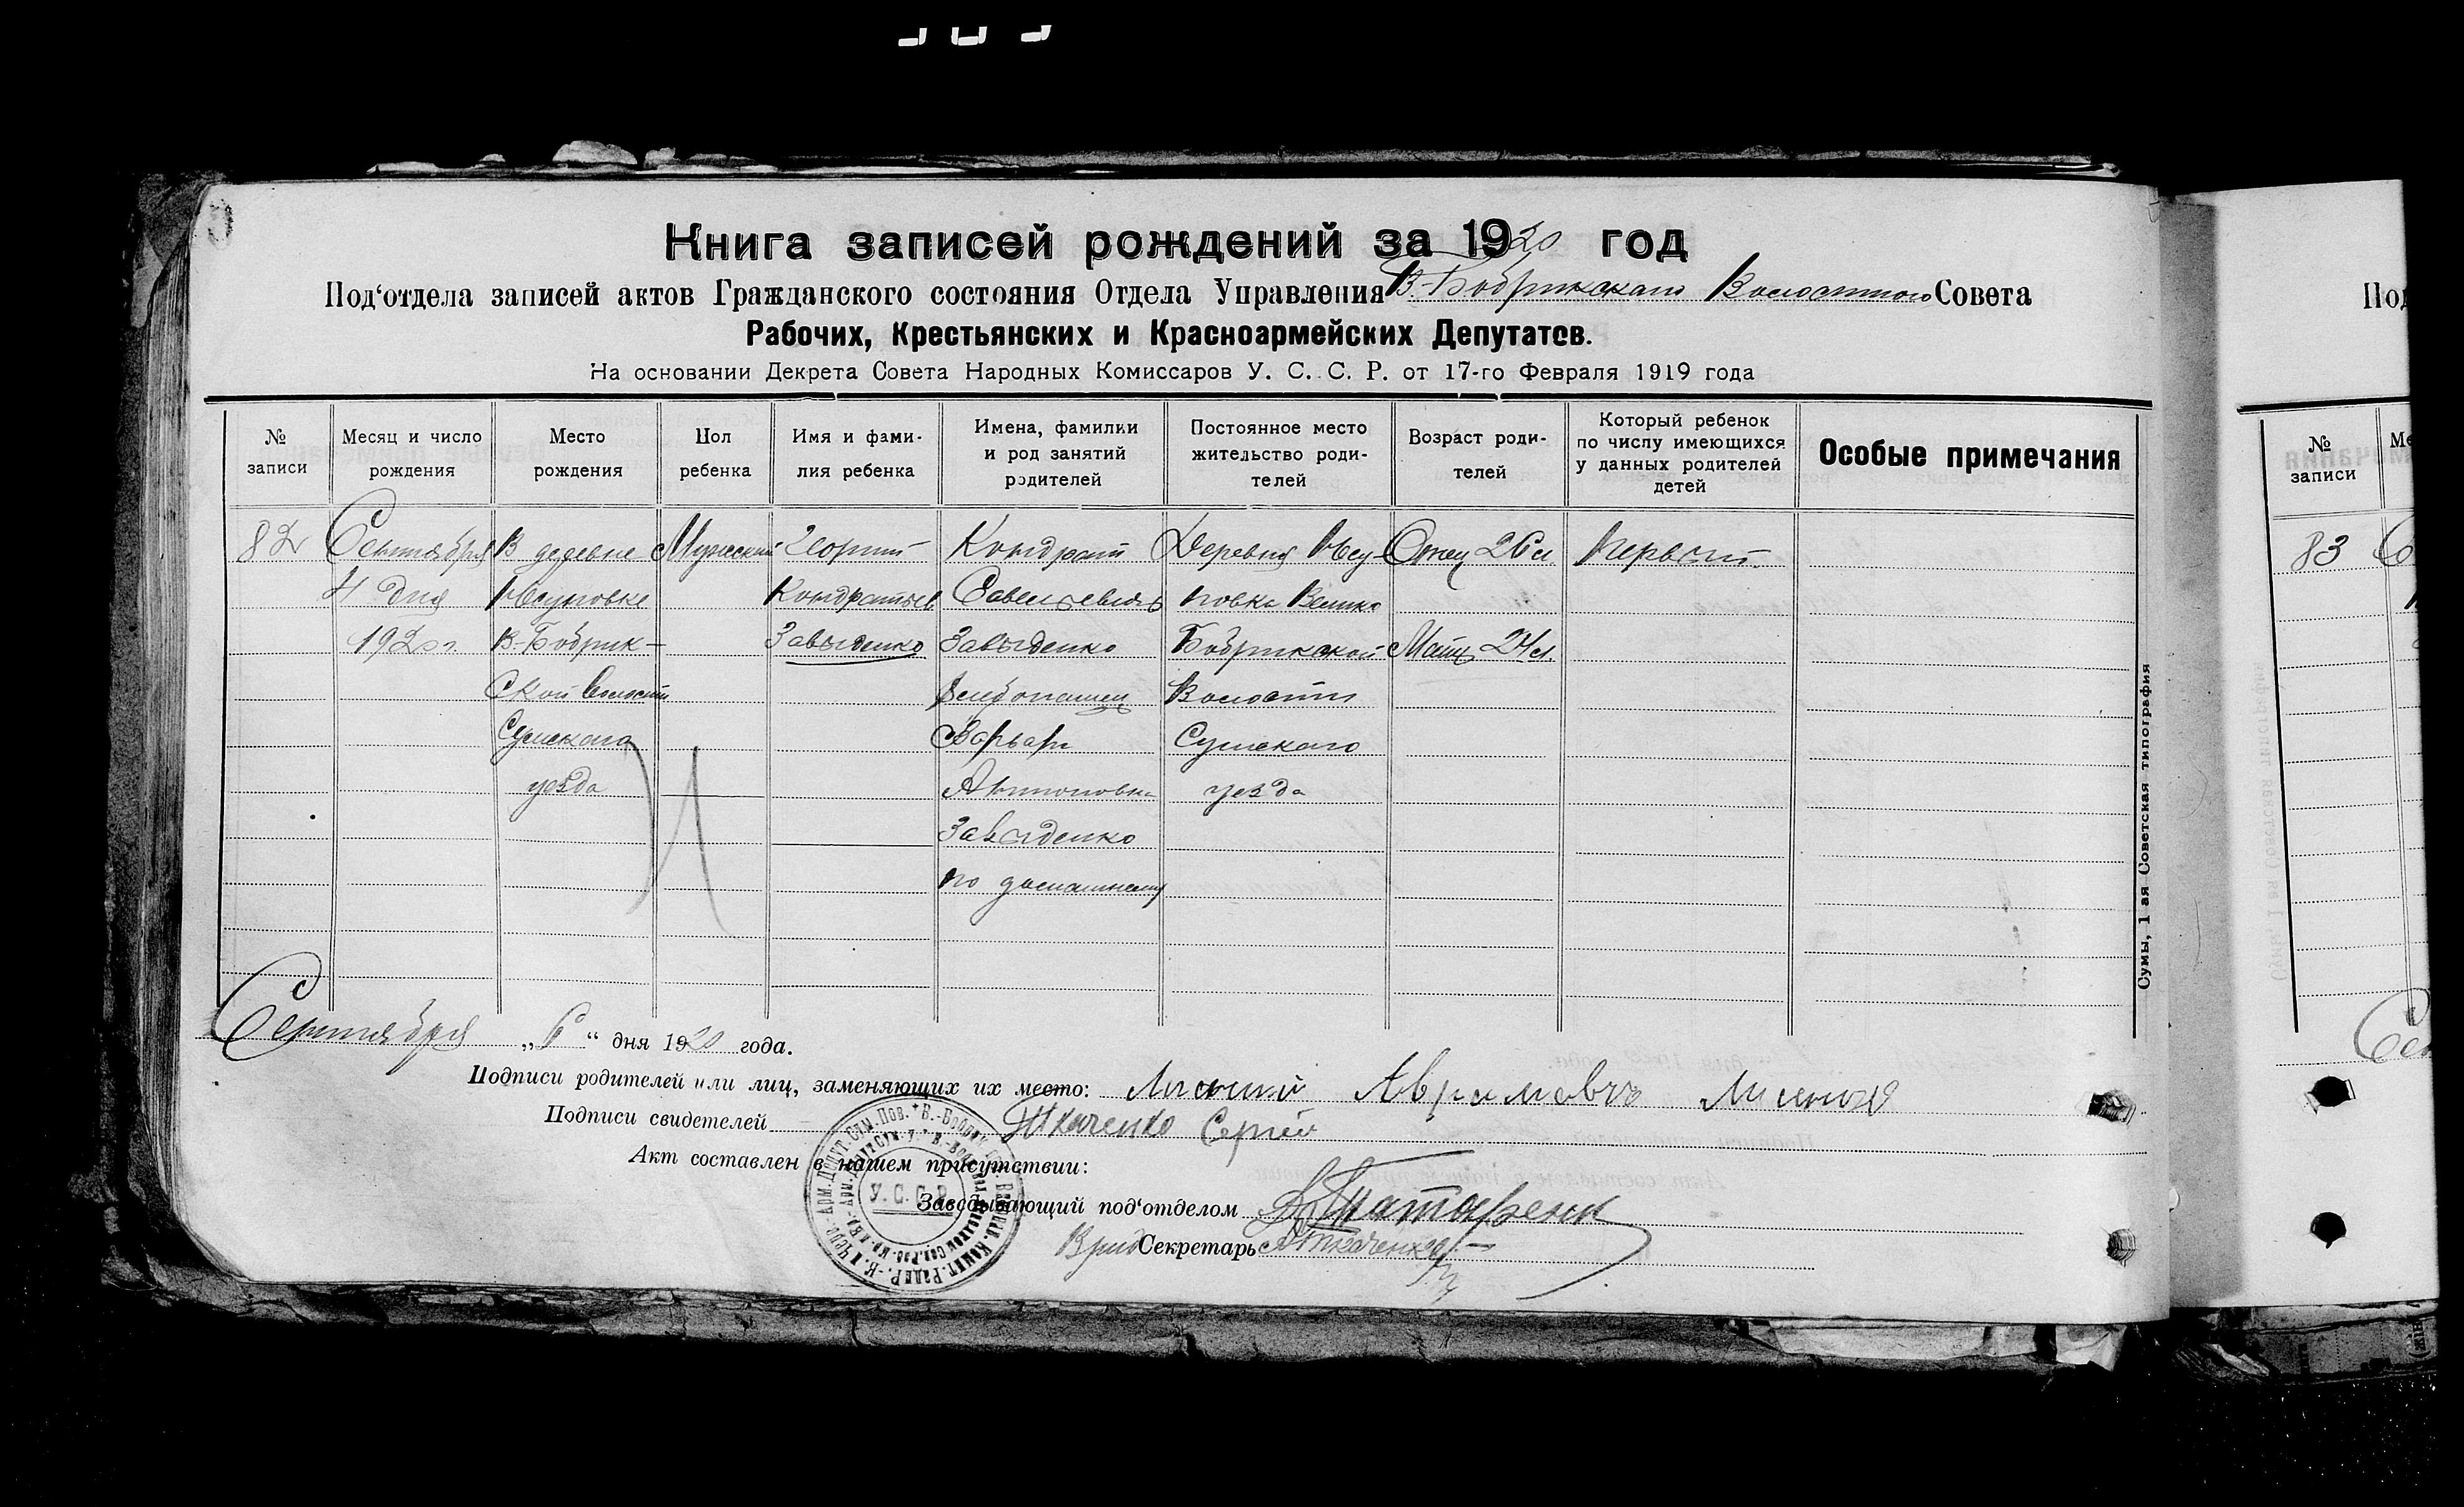 Книга записей рождений за 1920 год
Под‘отдела записей актов Гражданского состояния Отдела Управления В.-Бобрикскаго Волостного Совета
Рабочих, Крестьянских и Красноармейских Депутатов.
На основании Декрета Совета Народных Комиссаров У. С. С. Р. от 17-го Февраля 1919 года
№ записи
Месяц и число рождения
Место рождения
Пол ребенка
Имя и фами-
лия ребенка
Имена, фамилии
и род занятий
родителей
Постоянное место
жительство роди-
телей
Возраст роди-
телей
Который ребенок
по числу имеющихся
у данных родителей
детей
Особые примечания
82
Сентября
4 дня
1920 г.
В деревне
В-Бобрик-
ской Волости
Сумскаго
уезда
Мужеский
Георгий
Кондратьев
Завыденко
Кондрат
Савельевичъ
Завыденко
Хлебопашец
Варвара
Антоновна
Завыденко
по домашнему
Деревня
Велико
Бобрикской
Волости
Сумскаго
уезда
Отец 26 л.
Мать 24 л.
Первый.
Сентября „6“ дня 1920 года.
Подписи родителей или лиц, заменяющих их место: Аврамовичъ
Подписи свидетелей Ткаченко Сергей
Акт составлен в нашем присутствии:
Заведывающий под‘отделом
Врид Секретарь Ткаченко
У.С.С.Р.
Сумы, 1 ая Советская типография
Под
№
записи
Ме
83